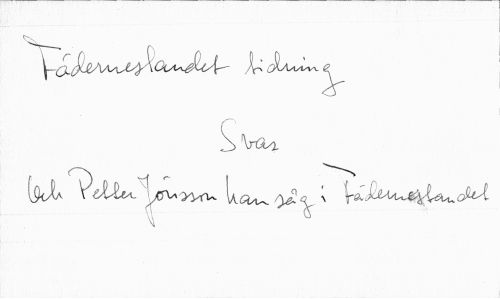 Fäderneslandet tidning
Svar
Och Petter Jönsson han såg i Fäderneslandet